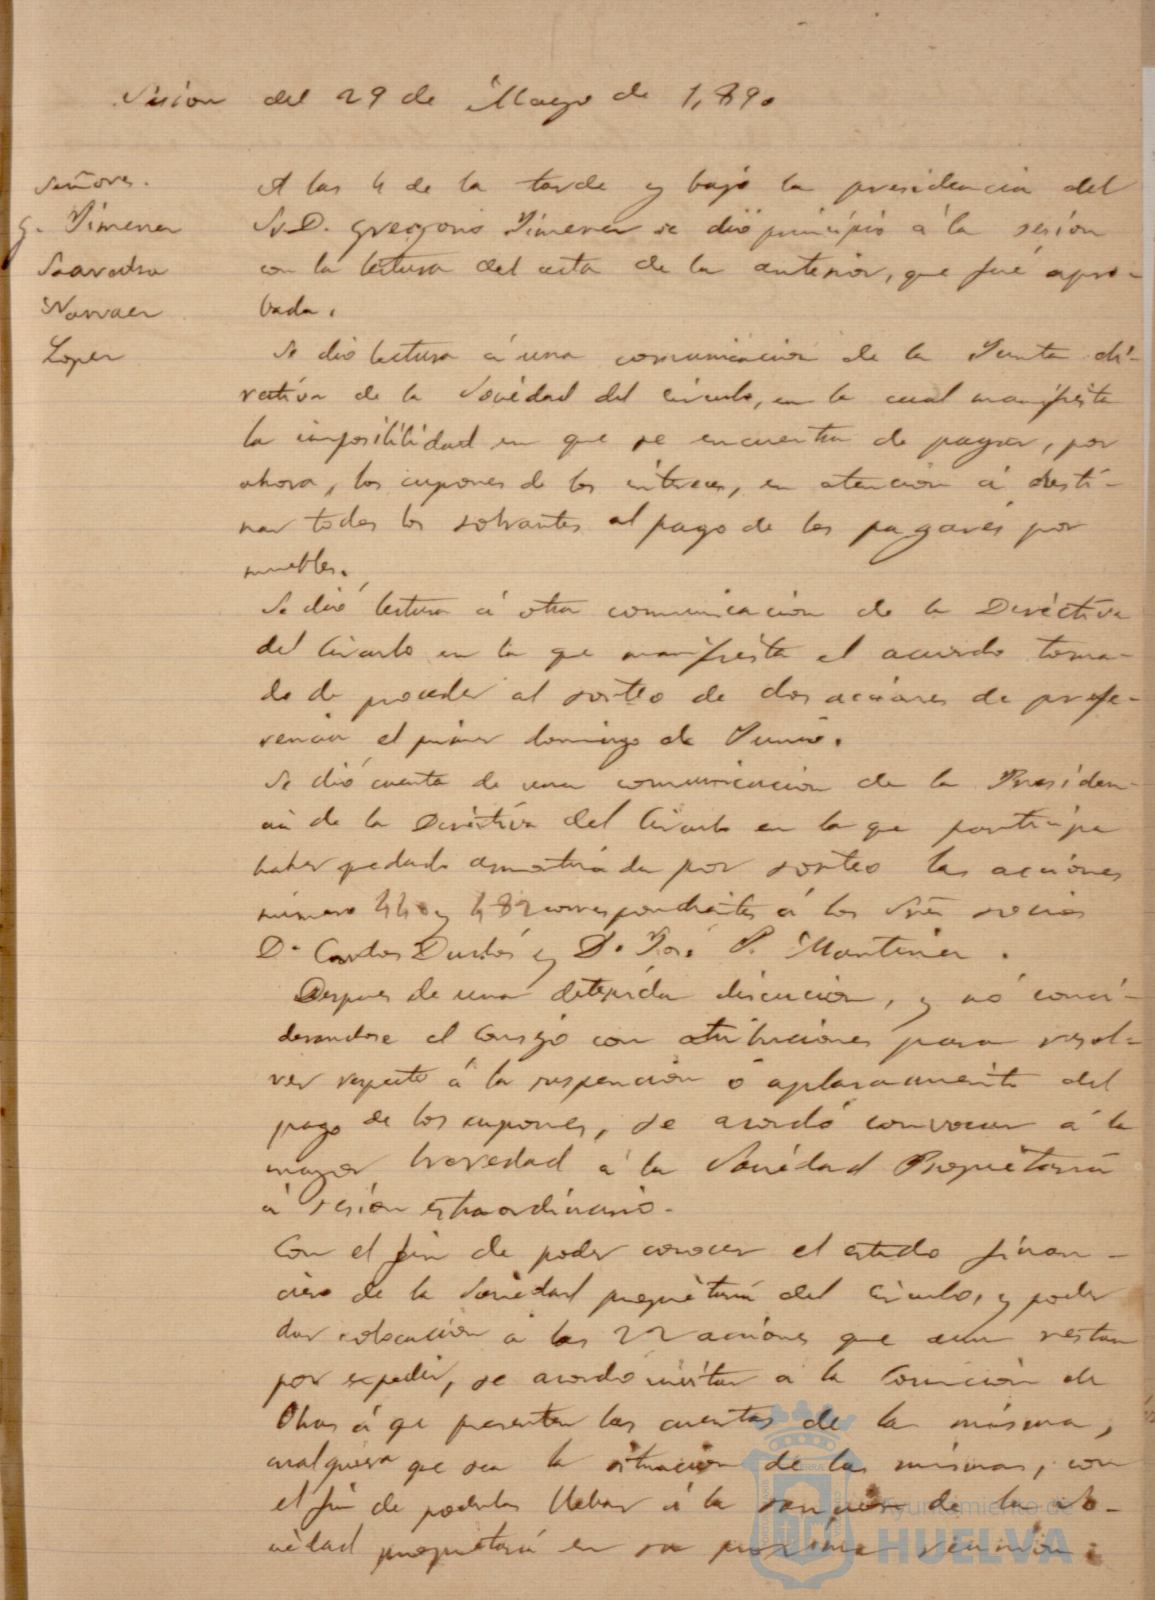 Sesion del 29 de Mayo de 1,890
Señores.
G. Jimenez
Saavedra
Narvaez
Lopez
A las 4 de la tarde y bajo la presidencia del
Sr. D. Gregorio Jimenez se dió principio á la sesión
con la lectura del acta de la anterior, que fué apro-
bada.
Se dio lectura á una comunicacion de la Junta di-
rectiva de la Sociedad del Circulo, en la cual manifiesta
la imposibilidad en que se encuentra de pagar, por
ahora, los cupones de los intereses, en atención á desti-
nar todos los sobrantes al pago de los pagarés por
muebles.
Se dió lectura á otra comunicación de la Directiva
del Circulo en la que manifiesta el acuerdo toma-
do de proceder al sorteo de dos acciones de prefe-
rencia el primer domingo de Junio.
Se dió cuenta de una comunicacion de la Presiden-
cia de la Directiva del Circulo en la que participa
haber quedado amortizadas por sorteo las acciones
número y 482 correspondientes á los Sres socios
Dn. Carlos y D. José P. Martinez.
Despues de una detenida discucion, y no consi-
derandose el Consejo con atribuciones para resol-
ver respecto á la suspencion ó aplazamiento del
pago de los cupones, se acordó convocar á la
mayor brevedad á la Sociedad Propietaria
á sesión estraordinaria.
Con el fin de poder conocer el estado finan-
ciero de la Sociedad propietaria del Circulo, y poder
dar colocación á las 22 acciones que aun restan
por expedir, se acordó invitar á la Comision de
Obras á que presenten las cuentas de la misma,
cualquiera que sea la situación de las mismas, con
el fin de poderlas llebar á la sanción de la So-
ciedad propietaria en su proxima reunión.
Ayuntamiento de
HUELVA